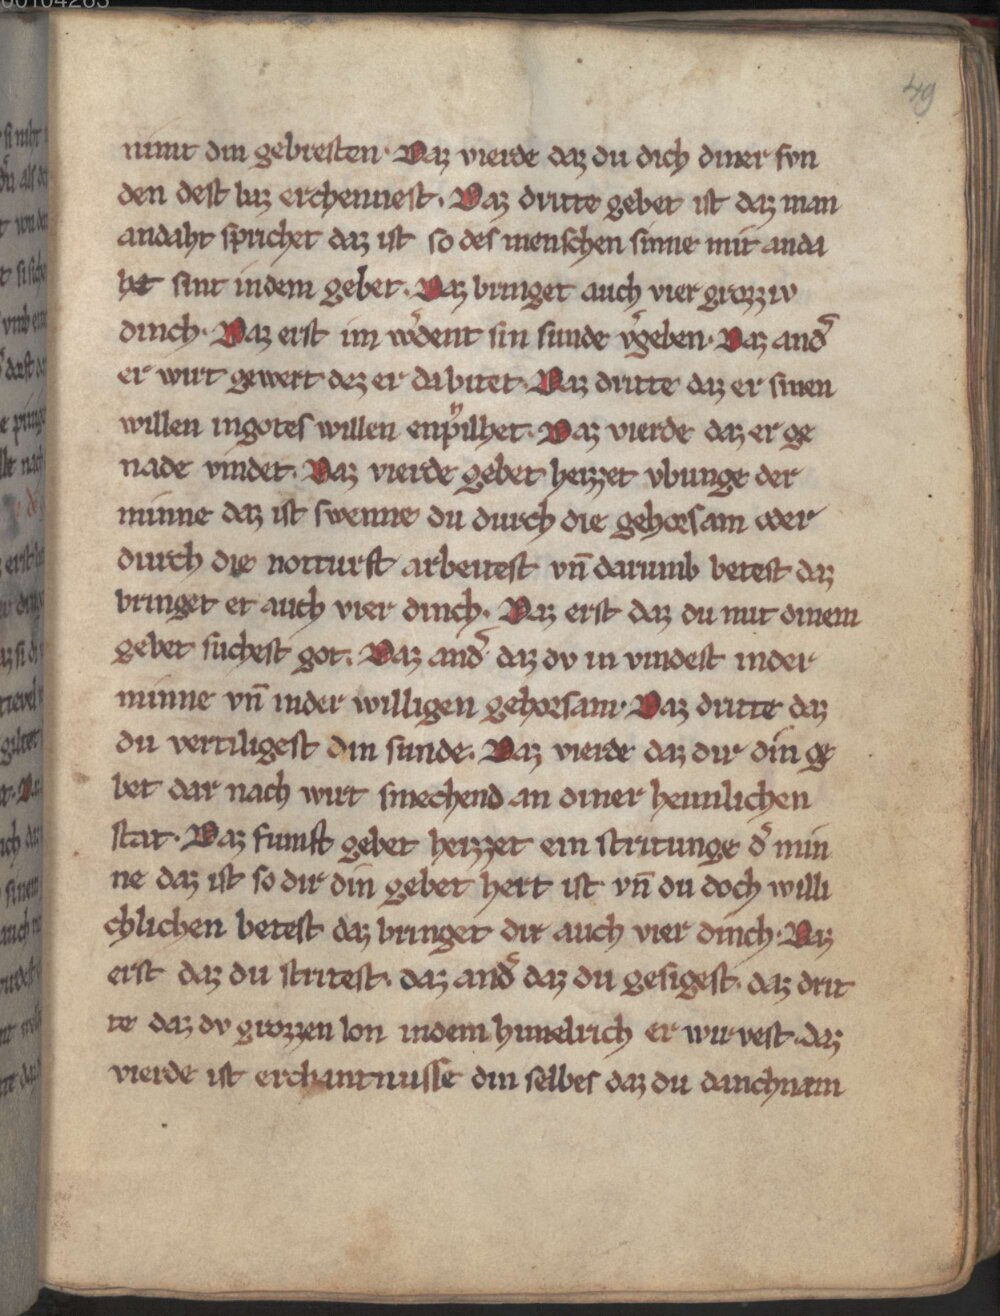 49
nimt din gebresten. Daz vierde daz du dich diner svn
den dest baz erchennest. Daz dritte gebet ist daz man
andaht sprichet daz ist so des menschen sinne mit anda
het sint indem gebet. Daz bringet auch vier grozziv
dinch. Daz erst im wͤdent sin sunde vͤgeben. Daz andͤ
er wirt gewert dez er da bitet. Daz dritte daz er sinen
willen in gotes willen enpͥilhet. Daz vierde daz er ge
nade vindet. Daz vierde gebet heizzet vbunge der
minne daz ist swenne du durch die gehorsam oder
durch die notturft arbeitest vn̄ darumb betest daz
bringet et auch vier dinch. Daz erst daz du mit dinem
gebet suchest got. Daz andͤ daz dv in vindest inder
minne vn̄ inder willigen gehorsam. Daz dritte daz
du vertiligest din sunde. Daz vierde daz dir din ge
bet dar nach wirt smechend an diner heimlichen
stat. Daz funft gebet heizzet ein stritunge dͤ min
ne daz ist so dir din gebet hert ist vn̄ du doch willi
chlichen betest daz bringet dir auch vier dinch. Daz
erst daz du stritest. daz andͤ daz du gesigest. daz drit
te daz dv grozzen lon indem himelrich er wirvest. daz
vierde ist erchantnusse din selbes daz du danchnam